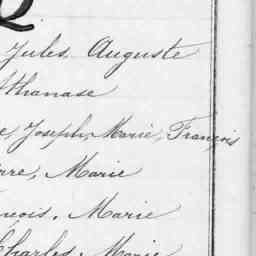 Q
Jules Auguste
Athanase
Joseph, Marie, François
Marie
Marie
Charles, Marie